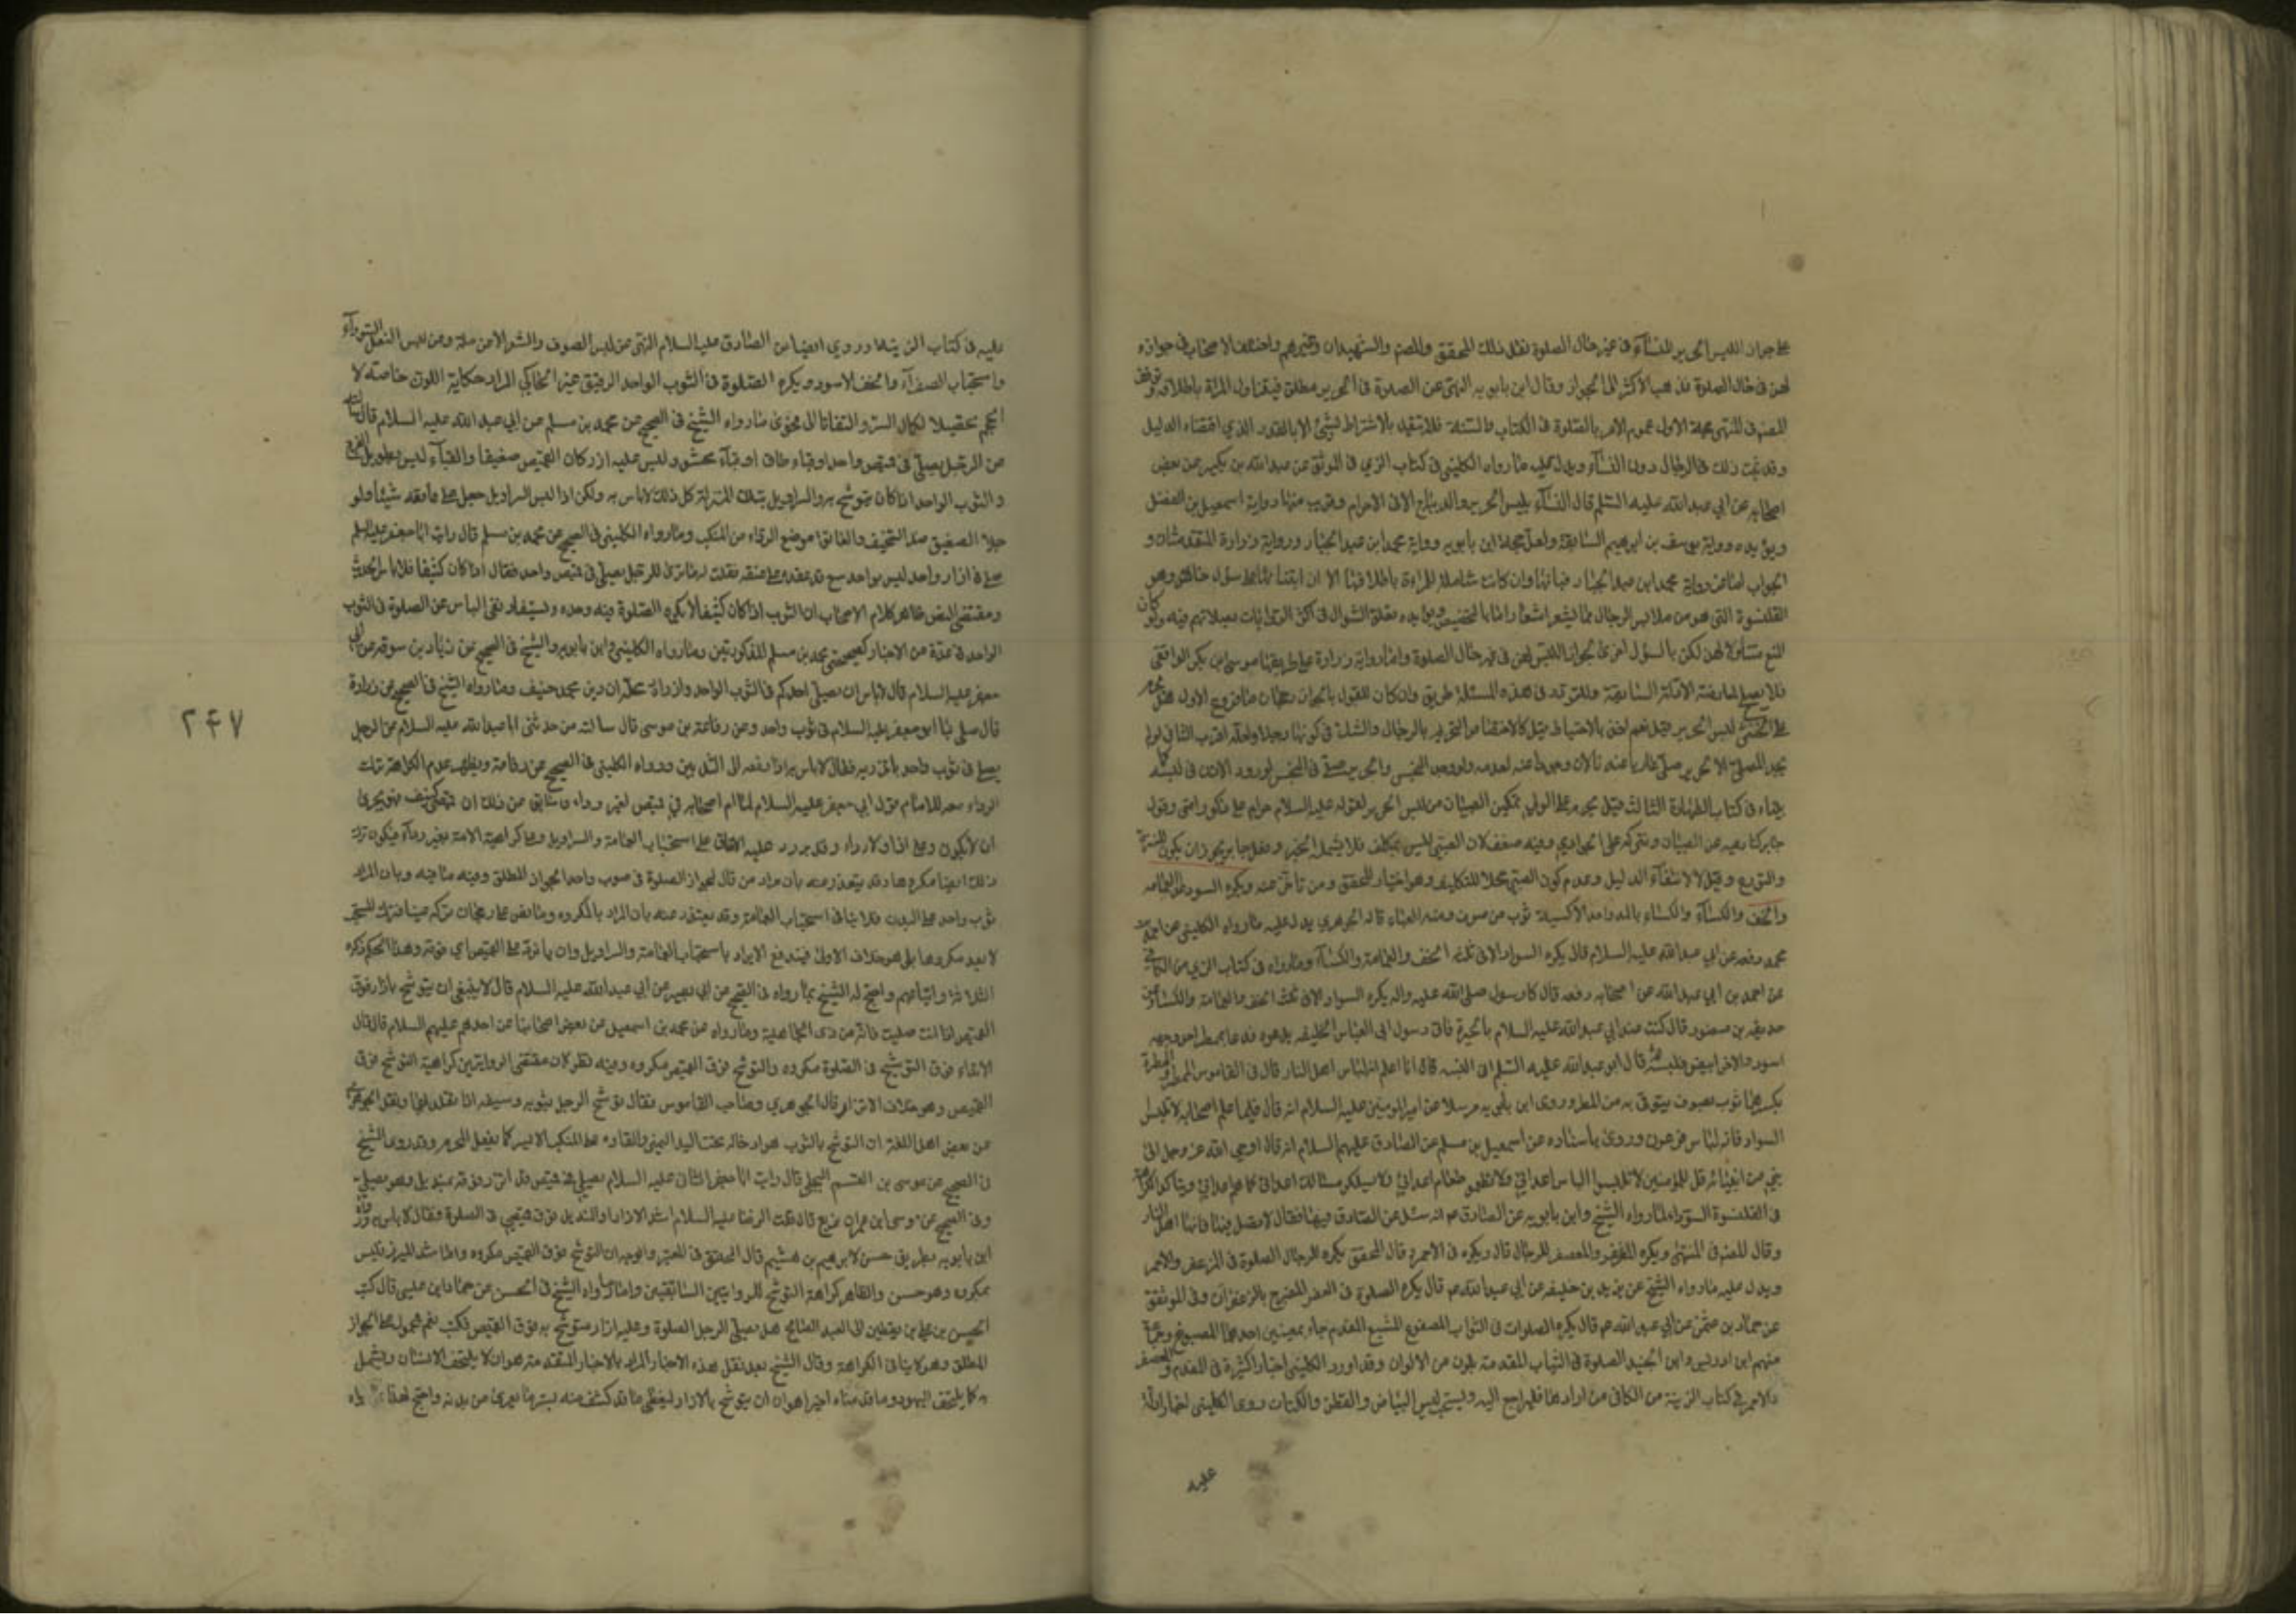 على جواز اللبس الحرير للنساء في غير حال الصلوة نقل ذلك المحقق والمصنف والشهيدان وغيرهم واختلف الاصحاب في جوازه
لهن في حال الصلوة فذهب الاكثر الى الجواز وقال ابن بابويه النهي عن الصلوة في الحرير مطلق فيتناول المراة باطلاقه وتوقف
المصنف في المنتهى حجة الاول عموم الامر بالصلوة في الكتاب والسنة فلا يتقيد بالاشتراط بشئ الا بالقدر الذي اقتضاه الدليل
وقد ثبت ذلك في الرجال دون النساء ويدل عليه ما رواه الكليني في كتاب الزي في الموثق عن عبد الله بن بكير عن بعض
اصحابه عن ابي عبد الله عليه السلم قال النساء يلبس الحرير والديباج الا في الاحرام وقريب منها رواية اسمعيل بن الفضل
ويؤيده رواية يوسف بن ابرهيم السابقة ولعل حجة ابن بابويه رواية محمد ابن عبد الجبار ورواية زرارة المتقدمتان و
الجواب اما عن رواية محمد ابن عبد الجبار فبانها وان كانت شاملة للمراة باطلاقها الا ان ابتنائها على سؤال خاص وهو
القلنسوة التي هو من ملابس الرجال مما يشعر اشعارا ما بالتخصيص ويؤيده تعلق السؤال في اكثر الروايات بصلاتهم فيه ولو كان
المنع متناولا لهن لكن بالسؤال احرى لجواز اللبس لهن في غير حال الصلوة واما رواية زرارة ففي طريقها موسى ابن بكر الواقفي
فلا يصلح لمعارضة الادلة السابقة وللتردد في هذه المسئلة طريق وان كان للقول بالجواز رجحان ما فروع الاول هل يحرم
على الخنثى لبس الحرير قيل نعم اخذا بالاحتياط وقيل لا لاختصاص التحريم بالرجال والشك في كونها رجلا ولعله اقرب الثاني لو لم
يجد المصلي الا الحرير صلى عاريا عندنا لان وجوده كعدمه ولو وجد النجس والحرير صلى في النجس لورود الاذن في لبسه كما
مضى في كتاب الطهارة الثالث قيل يحرم على الولي تمكين الصبيان من لبس الحرير لقوله عليه السلام حرام على ذكور امتي وقول
جابر كنا ننزعه عن الصبيان ونتركه على الجواري وفيه ضعف لان الصبي ليس بمكلف فلا يشمله الخبر وفعل جابر يجوز ان يكون للتنزه
والتورع وقيل لا لانتفاء الدليل وعدم كون الصبي محلا للتكليف وهو اختيار المحقق ومن تاخر عنه ويكره السود عدا العمامه
والخف والكساء والكساء بالمد واحد الاكسية ثوب من صوف ومنه العباء قاله الجوهري يدل عليه ما رواه الكليني عن احمد بن
محمد رفعه عن ابي عبد الله عليه السلام قال يكره السواد الا في ثلثه الخف والعمامة والكساء وما رواه في كتاب الزي من الكافي
عن احمد بن ابي عبد الله عن اصحابه رفعه قال كان رسول صلى الله عليه واله يكره السواد الا في ثلث الخف والعمامة والكساء وعن
حذيفه بن منصور قال كنت عند ابي عبد الله عليه السلام بالحيرة فاتى رسول ابي العباس الخليفه يدعوه فدعا بممطر احد وجهيه
اسود والاخر ابيض فلبسه ثم قال ابو عبد الله عليه السلم اني البسه قال انا اعلم انه لباس اهل النار قال في القاموس الممطر والممطرة
بكسرهما ثوب صوف يتوقى به من المطر وروى ابن بابويه مرسلا عن امير المومنين عليه السلام انه قال فيما علم اصحابه لا تلبسوا
السواد فانه لباس فرعون وروى باسناده عن اسمعيل بن مسلم عن الصادق عليهم السلام انه قال اوحى الله عز وجل الى
نبي من انبيائه قل للمؤمنين لا تلبسوا لباس اعدائي ولا تطعموا طعام اعدائي ولا تسلكوا مسالك اعدائي
في القلنسوة السوداء لما رواه الشيخ وابن بابويه عن الصادق ع انه سئل عن الصلوة فيها فقال لا تصل فيها فانها لباس اهل النار
وقال المصنف في المنتهى ويكره المزعفر والمعصفر للرجال قال ويكره في الاحمر قال المحقق يكره للرجال الصلوة في المزعفر والاحمر
ويدل عليه ما رواه الشيخ عن يزيد بن خليفه عن ابي عبد الله ع قال يكره الصلوة في المصبوغ المضرج بالزعفران وفي الموثق
عن حماد بن عثمن عن ابي عبد الله ع قال يكره الصلوات في الثواب المصبوغ المشبع المفدم جاء بمعنيين احدهما المصبوغ
منهم ابن ادريس وابن الجنيد الصلوة في الثياب المفدمة بلون من الالوان وقد اورد الكليني اخبارا كثيرة في المفدم والمعصفر
والاحمر في كتاب الزينة من الكافي من ارادها فليراجع اليه ويستحب لبس البياض والقطن والكتان روى الكليني اخبارا دالة
عليه
عليه في كتاب الزينة وروي ايضا عن الصادق عليه السلام النهي عن لبس الصوف والشعر الا من علة وعن لبس النعل السوداء
واستحباب الصفراء والخف الاسود ويكره الصلوة في الثوب الواحد الرقيق غير الحاكي المراد حكاية اللون خاصة لا
الحجم تحصيلا لكمال الستر والتفاتا الى فحوى ما رواه الشيخ في الصحيح عن محمد بن مسلم عن ابي عبد الله عليه السلام قال سالته
عن الرجل يصلي في قميص واحد او قباء طاق او قباء محشو وليس عليه ازار فقال اذا كان القميص صفيقا والقباء ليس بطويل الفرج
والثوب الواحد اذا كان يتوشح به والسراويل بتلك المنزلة كل ذلك لا باس به ولكن اذا لبس السراويل جعل على عاتقه شيئا ولو
حبلا الصفيق ضد السخيف والعاتق موضع الرداء من المنكب وما رواه الكليني في الصحيح عن محمد بن مسلم قال رايت ابا جعفر عليه السلم
صلى في ازار واحد ليس بواسع قد عقده على عنقه فقلت له ما ترى للرجل يصلي في قميص واحد فقال اذا كان كثيفا فلا باس
ومقتضى النص ظاهر كلام الاصحاب ان الثوب اذا كان كثيفا لا يكره الصلوة فيه وحده ويستفاد نفي الباس عن الصلوة في الثوب
الواحد في عدة من الاخبار كصحيحتي محمد بن مسلم المذكورتين وما رواه الكليني وابن بابويه والشيخ في الصحيح عن زياد بن سوقه عن ابي
جعفر عليه السلام قال لا باس ان يصلي احدكم في الثوب الواحد وازراره محللة ان دين محمد حنيف وما رواه الشيخ في الصحيح عن زرارة
قال صلى بنا ابو جعفر عليه السلام في ثوب واحد وعن رفاعة بن موسى قال سالته من حدثني ابا عبد الله عليه السلام عن الرجل
يصلي في ثوب واحد ياتزر به فقال لا باس به اذا رفعه الى الثديين ورواه الكليني في الصحيح عن رفاعة ويظهر عدم الكراهة بترك
الرداء معه للامام من قول ابي جعفر عليه السلام لما ام اصحابه في قميص لغير رداء ان قميصي كثيف فهو يجزئ
ان لا يكون على ازار ولا رداء وقد يورد عليه الاتفاق على استحباب العمامة والسراويل وعلى كراهية الامة بغير رداء فيكون ترك
ذلك ايضا مكروها وقد يعتذر عنه بان مراد من قال بجواز الصلوة في ثوب واحد الجواز المطلق وفيه ما فيه وبان المراد
ثوب واحد على البدن فلا ينافي استحباب العمامة وقد يعتذر عنه بان المراد بالمكروه وما نص على رجحان تركه عينا فترك المستحب
لا يعد مكروها بل هو خلاف الاولى فيندفع الايراد باستحباب العمامة والسراويل وان ياتزر على القميص اي فوقه وهذا الحكم ذكره
الثلاثة واتباعهم واحتج له الشيخ بما رواه في الصحيح عن ابي بصير عن ابي عبد الله عليه السلام قال لا ينبغي ان يتوشح بازار فوق
القميص اذا انت صليت فانه من زي الجاهلية وما رواه عن محمد بن اسمعيل عن بعض اصحابنا عن احدهم عليهم السلام قال قال
الارتداء فوق التوشح في الصلوة مكروه والتوشح فوق القميص مكروه وفيه نظر لان مقتضى الروايتين كراهية التوشح فوق
القميص وهو خلاف الاتزار قال الجوهري وصاحب القاموس يقال توشح الرجل بثوبه وسيفه اذا تقلد بهما ونقل الجوهري
عن بعض اهل اللغة ان التوشح بالثوب هو ادخاله تحت اليد اليمنى والقاءه على المنكب الايسر كما يفعل المحرم وقد روى الشيخ
في الصحيح عن موسى بن القسم البجلي قال رايت ابا جعفر الثاني عليه السلام يصلي في قميص قد اتزر فوقه بمنديل وهو يصلي
وفي الصحيح عن موسى ابن عمر بن بزيع قال قلت للرضا عليه السلام اشد الازار والمنديل فوق قميصي في الصلوة فقال لا باس به ورواه
ابن بابويه بطريق حسن لابرهيم بن هشيم قال المحقق في المعتبر والوجه ان التوشح فوق القميص مكروه واما شد الميزر فليس
بمكروه وهو حسن والظاهر كراهة التوشح للروايتين السابقتين واما ما رواه الشيخ في الحسن عن حماد ابن عيسى قال كتب
الحسن بن علي بن يقطين الى العبد الصالح هل يصلي الرجل الصلوة وعليه ازار متوشح به فوق القميص فكتب نعم فمحمول على الجواز
المطلق وهو لا ينافي الكراهة وقال الشيخ بعد نقل هذه الاخبار المراد بالاخبار المتقدمة هو ان لا يلتحف الانسان ويشتمل
كما يلتحف اليهود وما قدمناه اخيرا هو ان يتوشح بالازار ليغطي ما قد كشف منه ويستر ما تعرى من بدنه واحتج
۲۴۷